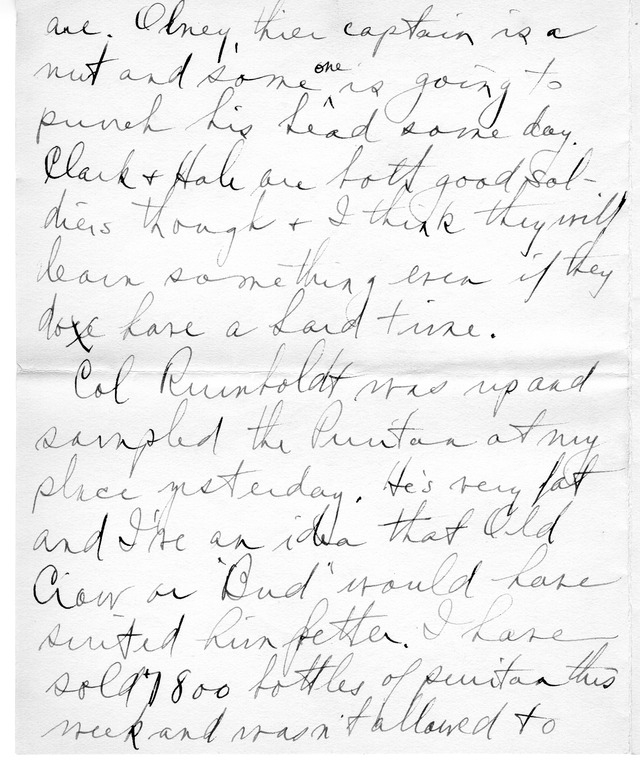 are. Olney, thier captain is a
nut and some one is going to
punch his head some day.
Clark & Hale are both good sol-
diers though & I think they will
learn something even if they
do have a hard time.
Col Rumboldt was up and
sampled the Puritan at my
place yesterday. He's very fat
and I've an idea that Old
Crow or "Bud" would have
suited him better. I have
sold 7800 bottles of puritan this
week and wasn't allowed to